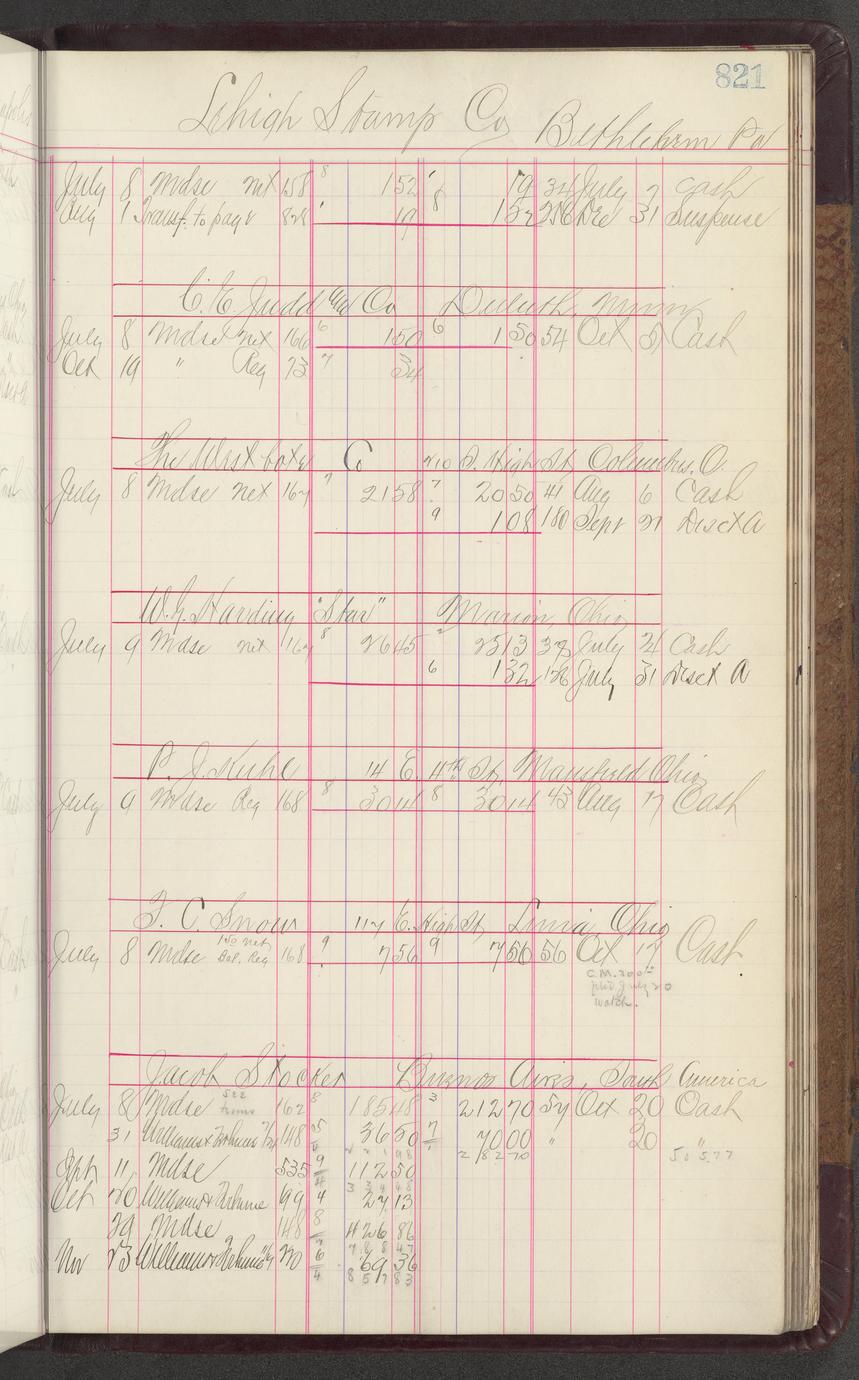 821
Lehigh Stamp Co Bethlehem Pa
July 8 Mdse net 158 8 152 ' 19 34 July 7 Cash
Aug 1 Transf. to page 828 ' 19 8 152 256 Dec 31 Suspense
C. E. Judd Co Duluth, Minn
July 8 Mdse net 166 6 150 6 150 54 Oct Cash
Oct 19 " Reg 73 7 34
The Westbote Co 210 S. High St, Columbus. O.
July 8 Mdse net 167 7 2158 7 2050 41 Aug 6 Cash
9 108 180 Sept 21 Disct A
W. G. Harding "Star" Marion, Ohio
July 9 Mdse net 167 8 2645 2513 July 24 Cash
6 132 July 31 Disct A
P. J. Kuhl 14 E. 4th St, Mansfield Ohio
July 9 Mdse Reg 168 8 3014 8 3014 43 Aug 17 Cash
F. C. Snow 117 E. High St, Lima, Ohio
July 8 Mdse 150 net Bal. Reg 168 9 756 9 756 56 Oct 17 Cash
C.M. 300
July 20
watch.
Jacob Stocker Buenos Aires, South America
July 8 Mdse see terms 162 8 18548 3 21270 57 Oct 20 Cash
31 Williams 148 5 3650 7 7000 " 20 "
2 2 1 98 28270 50 5.77
Sept 11 Mdse 535 9 11250
3 3 4 48
Oct 20 Williams 199 4 2713
29 Mdse 148 8 42686
7 8 8 47
Nov 23 Williams 220 6 6936
8 5 7 83